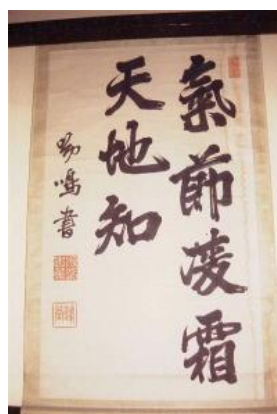 氣節凌霜
天地知
易鳴書